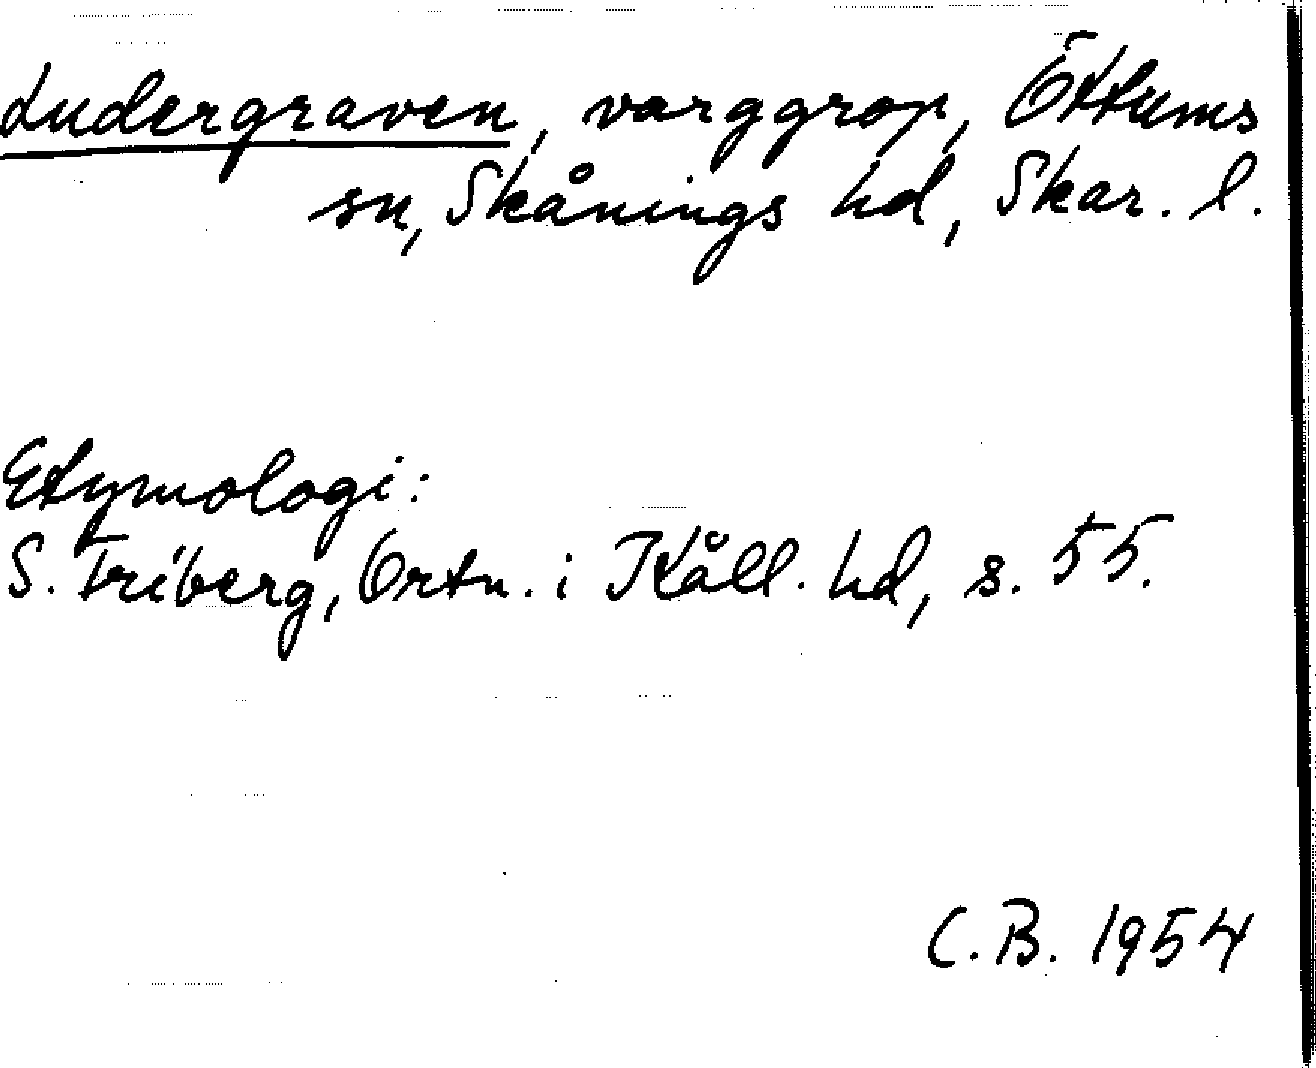 Ludergraven, varggrop, Öttums
sn, Skånings hd, Skar. l.
Etymologi:
S. Friberg, Ortn. i Kåll. hd, s. 55.
C.B. 1954